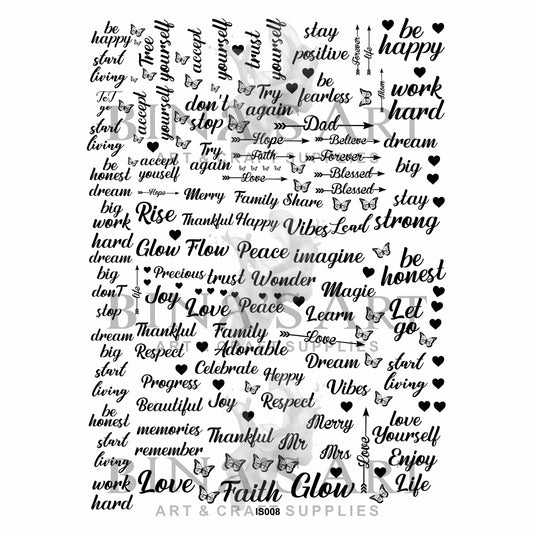 be happy
start living
Tree yourself
accept yourself
trust yourself
stay positive
Forever
life
be happy
LeT go
start living
accept yourself
don't stop
Try again
be fearless
Mom
work hard
Dad
Hope
Believe
dream
be honest
accept youself
Try again
Faith
Forever
big
Love
Blessed
Blessed
dream
Hope
Merry
Family
Share
stay strong
big
work hard
Rise
Thankful
Happy
Vibes
Lead
Glow
Flow
Peace
imagine
be honest
dream
big
Precious
trust
Wonder
life
Magie
donT stop
Joy
Love
Peace
Learn
Let go
dream
big
Thankful
Family
Love
Respect
Adorable
Dream
start living
start living
Celebrate
Progress
Heppy
Vibes
be honest
Beautiful
Joy
Respect
love Yourself
start living
memories
remember
Thankful
Mr
Merry
Mrs
Love
Enjoy Life
work hard
Love
Faith
Glow
BINA'S ART
ART & CRAFT SUPPLIES
BINA'S ART
ART & CRAFT SUPPLIES
BINA'S ART
ART & CRAFT SUPPLIES
IS008